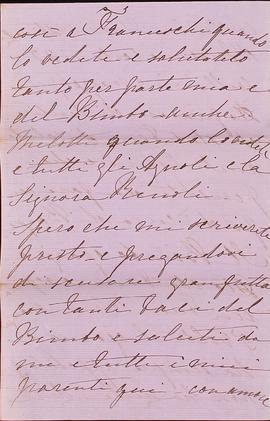 così a Franceschi quando
lo vedete e salutatelo
tanto per parte mia e
del Bimbo anche
quando lo vedete
e tutti gli Agnoli e la
Signora
Spero che mi scriverete
presto e pregandovi
di scusare gran fretta
con tanti baci del
Bimbo e saluti da
me e tutti i miei
parenti qui con amore